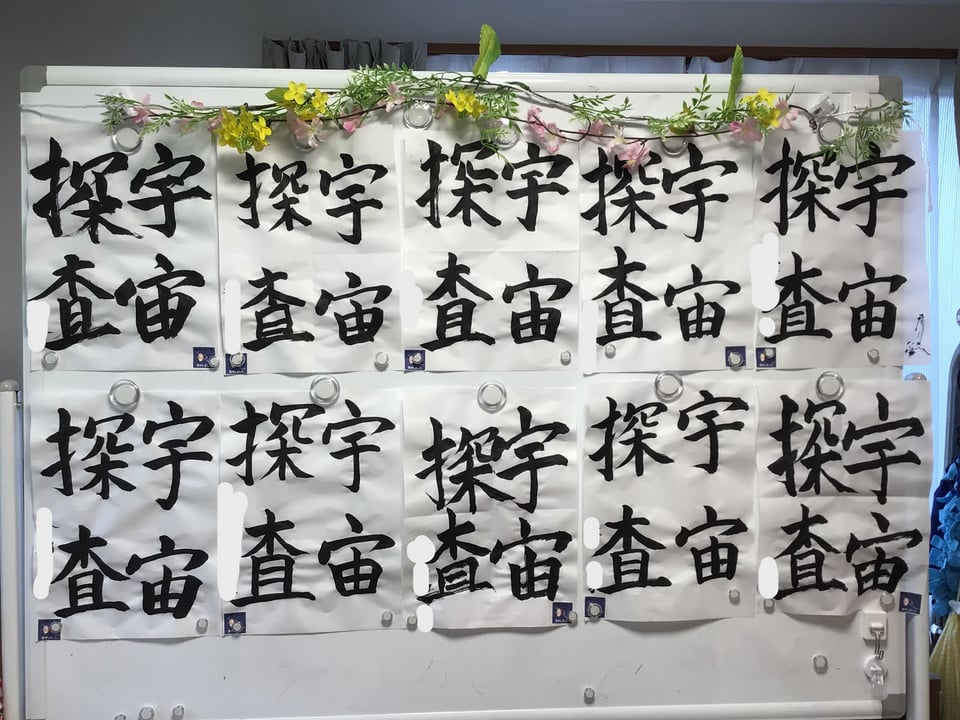 宇宙
探査
宇宙
探査
宇宙
探査
宇宙
探査
宇宙
探査
宇宙
探査
宇宙
探査
宇宙
探査
宇宙
探査
宇宙
探査